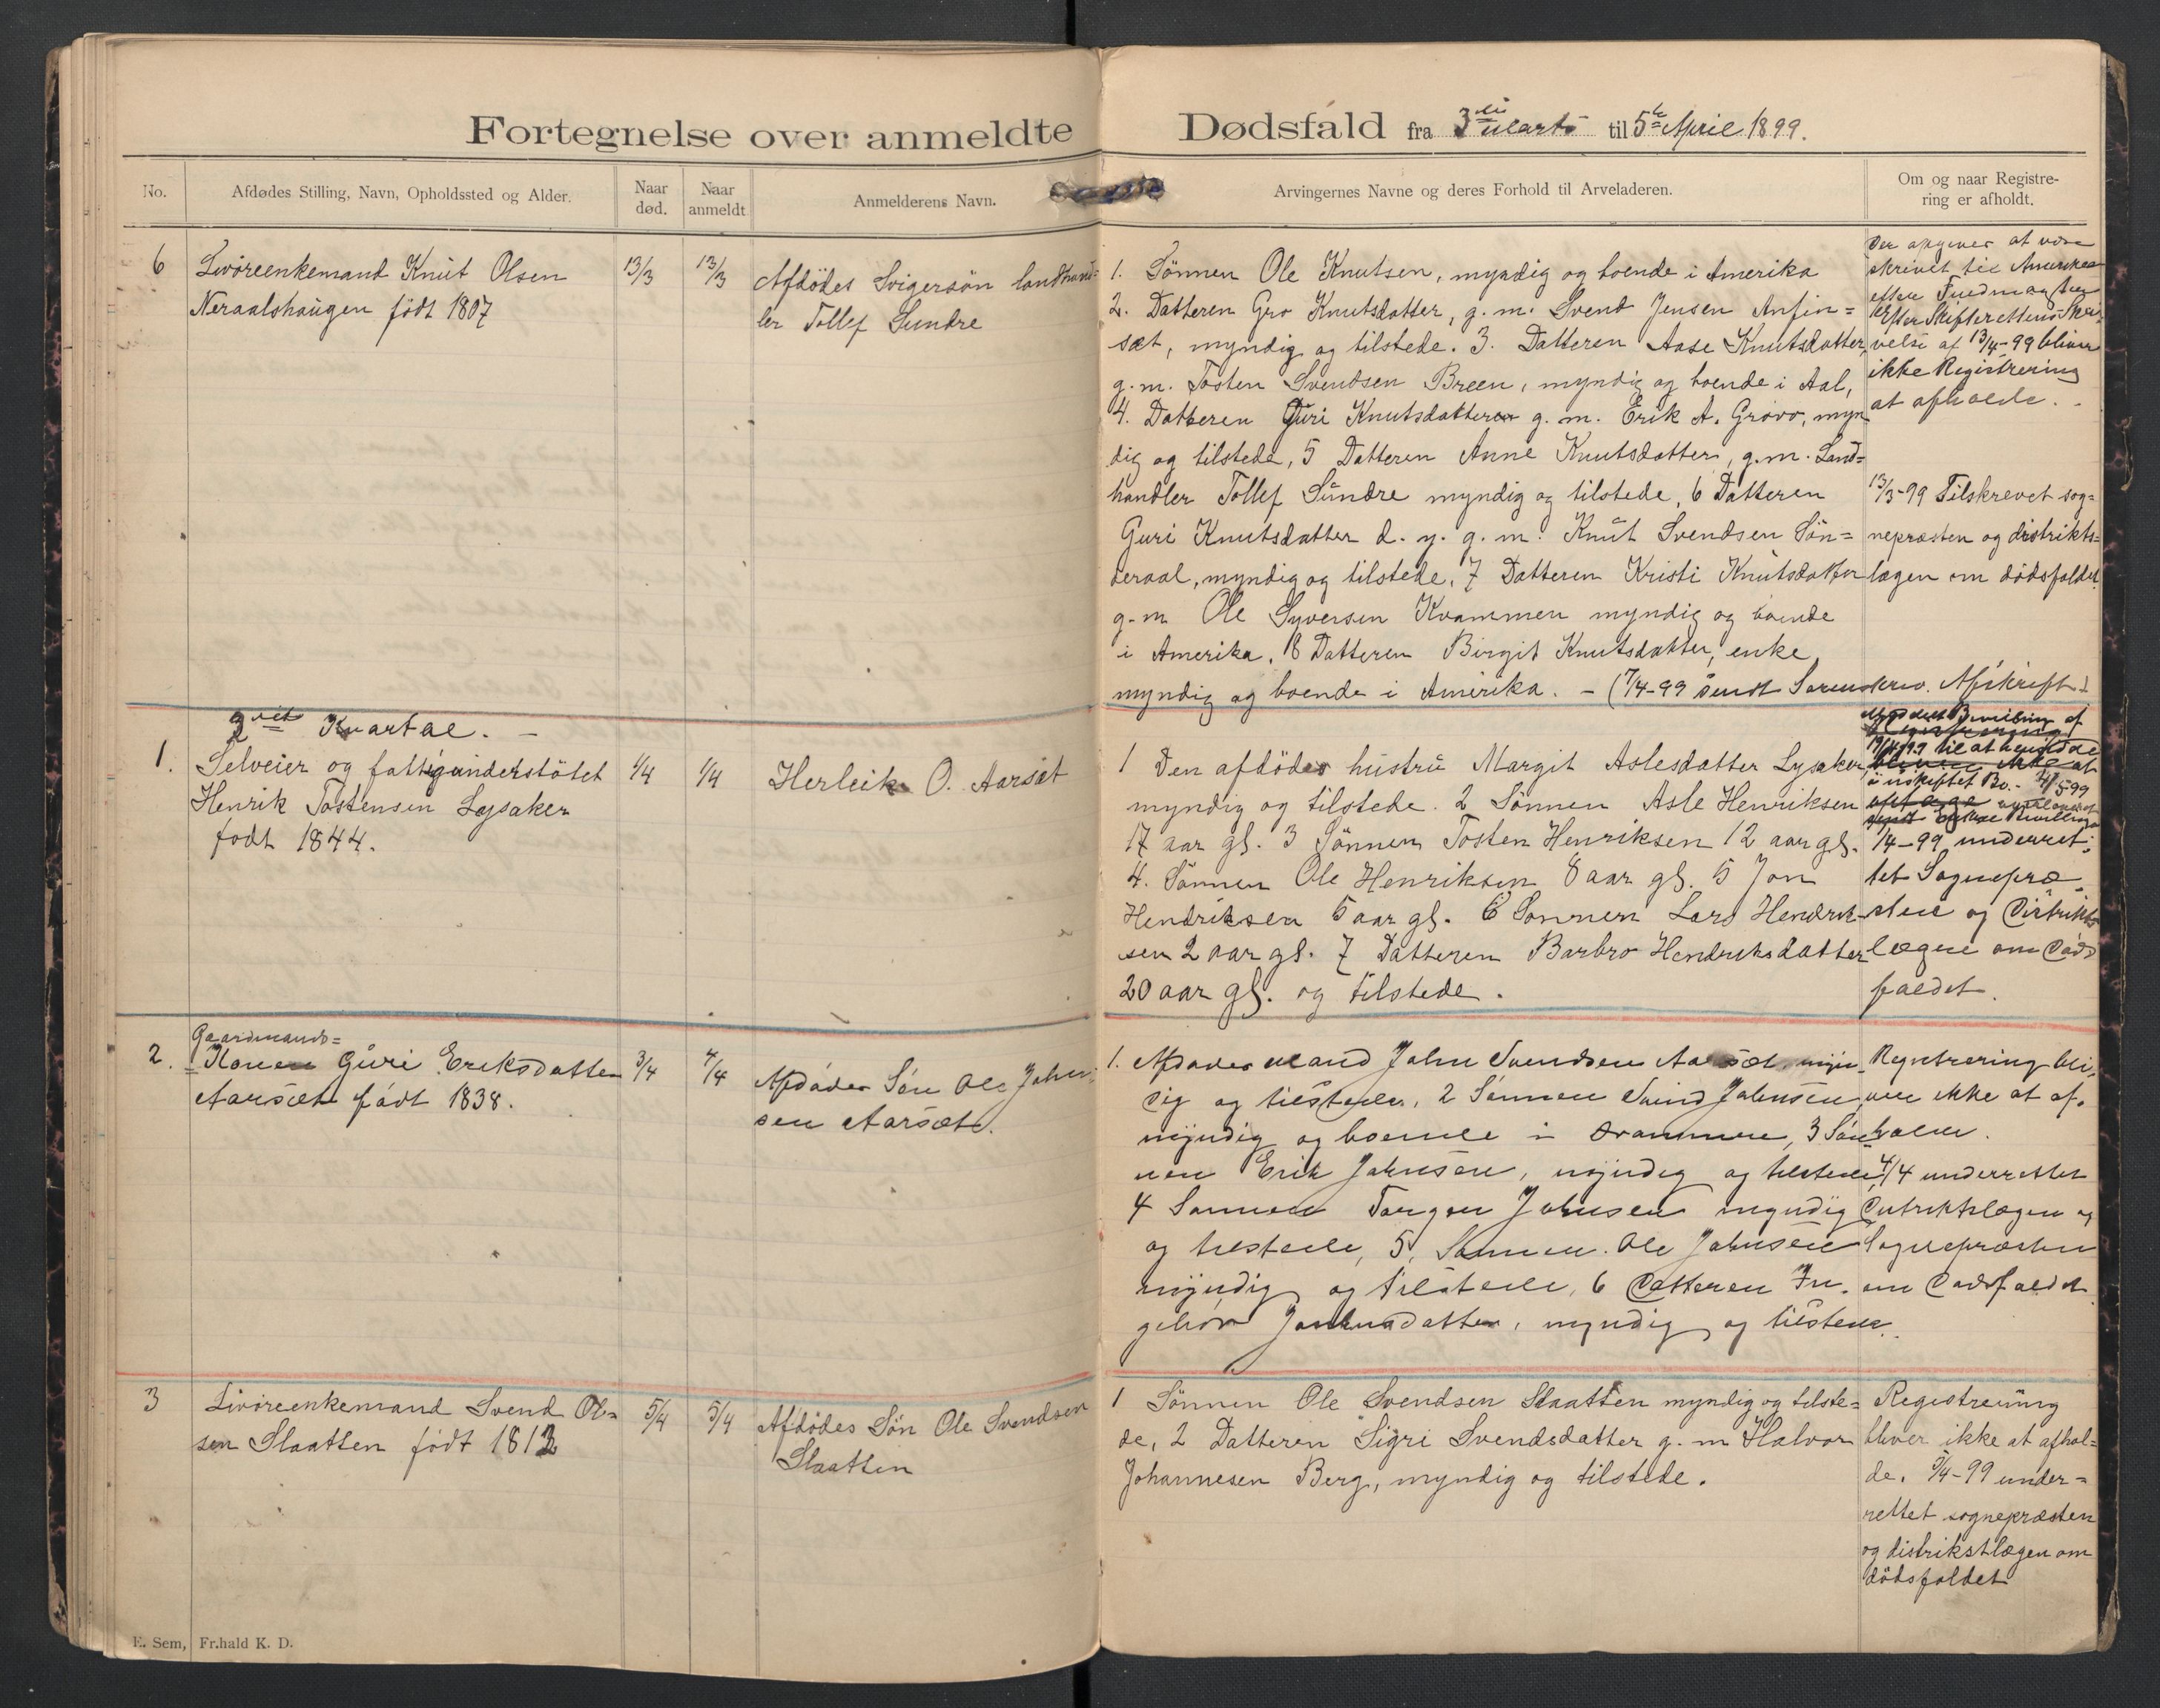 Fortegnelse over anmeldte Dødsfald fra 3die Marts til 5te April 1899.
No. Afdødes Stilling, Navn, Opholdssted og Alder. Naar død. Naar anmeldt Anmelderens Navn. Arvingernes Navne og deres Forhold til Arveladeren. Om og naar Registrering er afholdt.
6 Livöreenkemand Knut Olsen
Neraalshaugen födt 1807
13/3
13/3
Afdödes Svigersön landhand=
ler Tollef Sundre
1. Sönnen Ole Knutsen, myndig og boende i Amerika
2. Datteren Gro Knutsdatter, g. m. Svend Jensen Anfin=
sæt, myndig og tilstede. 3. Datteren Aase Knutsdatter,
g. m. Tosten Svendsen Breen, myndig og boende i Aal,
4. Datteren Guri Knutsdatter g. m. Erik A. Grövo, myn
dig og tilstede, 5 Datteren Anne Knutsdatter, g. m. Land=
handler Tollef Sundre myndig og tilstede, 6 Datteren
Guri Knutsdatter d. y. g. m. Knut Svendsen Sön=
deraal, myndig og tilstede, 7 Datteren Kristi Knutsdatter
g. m. Ole Syversen Kvammen myndig og boende
i Amerika. 8 Datteren Birgit Knutsdatter, enke,
myndig og boende i Amerika. - (7/4-99 sendt Sorenskriv. Afskrift.)
Der opgives at være
skrivet til Amerika
efter Fuldmagter
Efter Skifterettens Skri=
velse af 13/4-99 bliver
ikke Registrering
at afholde.
13/3-99 Tilskrevet sog=
nepræsten og distrikts=
lægen om dödsfaldet.
2det Kvartal. -
1. Selveier og fattigunderstötet
Henrik Tostensen Lysaker
födt 1844.
1/4
1/4
Herleik O. Aarsæt
1 Den afdödes hustru Margit Aslesdatter Lysaker
myndig og tilstede. 2 Sönnen Asle Henriksen
17 aar gl. 3 Sönnen Tosten Henriksen 12 aar gl.
4. Sönnen Ole Henriksen 8 aar gl. 5 Jon
Hendriksen 5 aar gl. 6 Sönnen Lars Hendrik=
sen 2 aar gl. 7 Datteren Barbro Hendriksdatter
20 aar gl. og tilstede.
Meddelt Bevilling af
19/4 1899 til at hensidde
bliver ikke at
i uskiftet Bo. -
1/4-99 underret=
tet Sognepræ=
sten og Distrikts
lægen om Döds
faldet.
2. Gaardmands=
Konen Guri Eriksdatter
Aarsæt födt 1838.
3/4
4/4
Afdödes Sön Ole John=
sen Aarsæt.
1. Afdödes Mand John Svendsen Aarsæt, myn=
dig og tilstede, 2 Sönnen Svend Johnsen,
myndig og boende i Drammen, 3 Sön=
nen Erik Johnsen, myndig og tilstede,
4 Sönnen Torger Johnsen myndig
og tilstede, 5, Sönnen Ole Johnsen
myndig og tilstede, 6 Datteren In=
gebör Johnsdatter, myndig og tilstede.
Registrering bli=
ver ikke at af=
holde.
4/4 underrettet
Distriktslægen og
Sognepræsten
om Dödsfaldet.
3 Livöreenkemand Svend Ol=
sen Slaatten födt 1812
5/4
5/4
Afdödes Sön Ole Svendsen
Slaatten
1 Sönnen Ole Svendsen Slaatten myndig og tilste=
de, 2 Datteren Sigri Svendsdatter g. m Halvor
Johannesen Berg, myndig og tilstede.
Registrering
bliver ikke at afhol=
de. 5/4-99 under=
rettet sognepræsten
og distrikstlægen om
dödsfaldet
E. Sem, Fr.hald K. D.